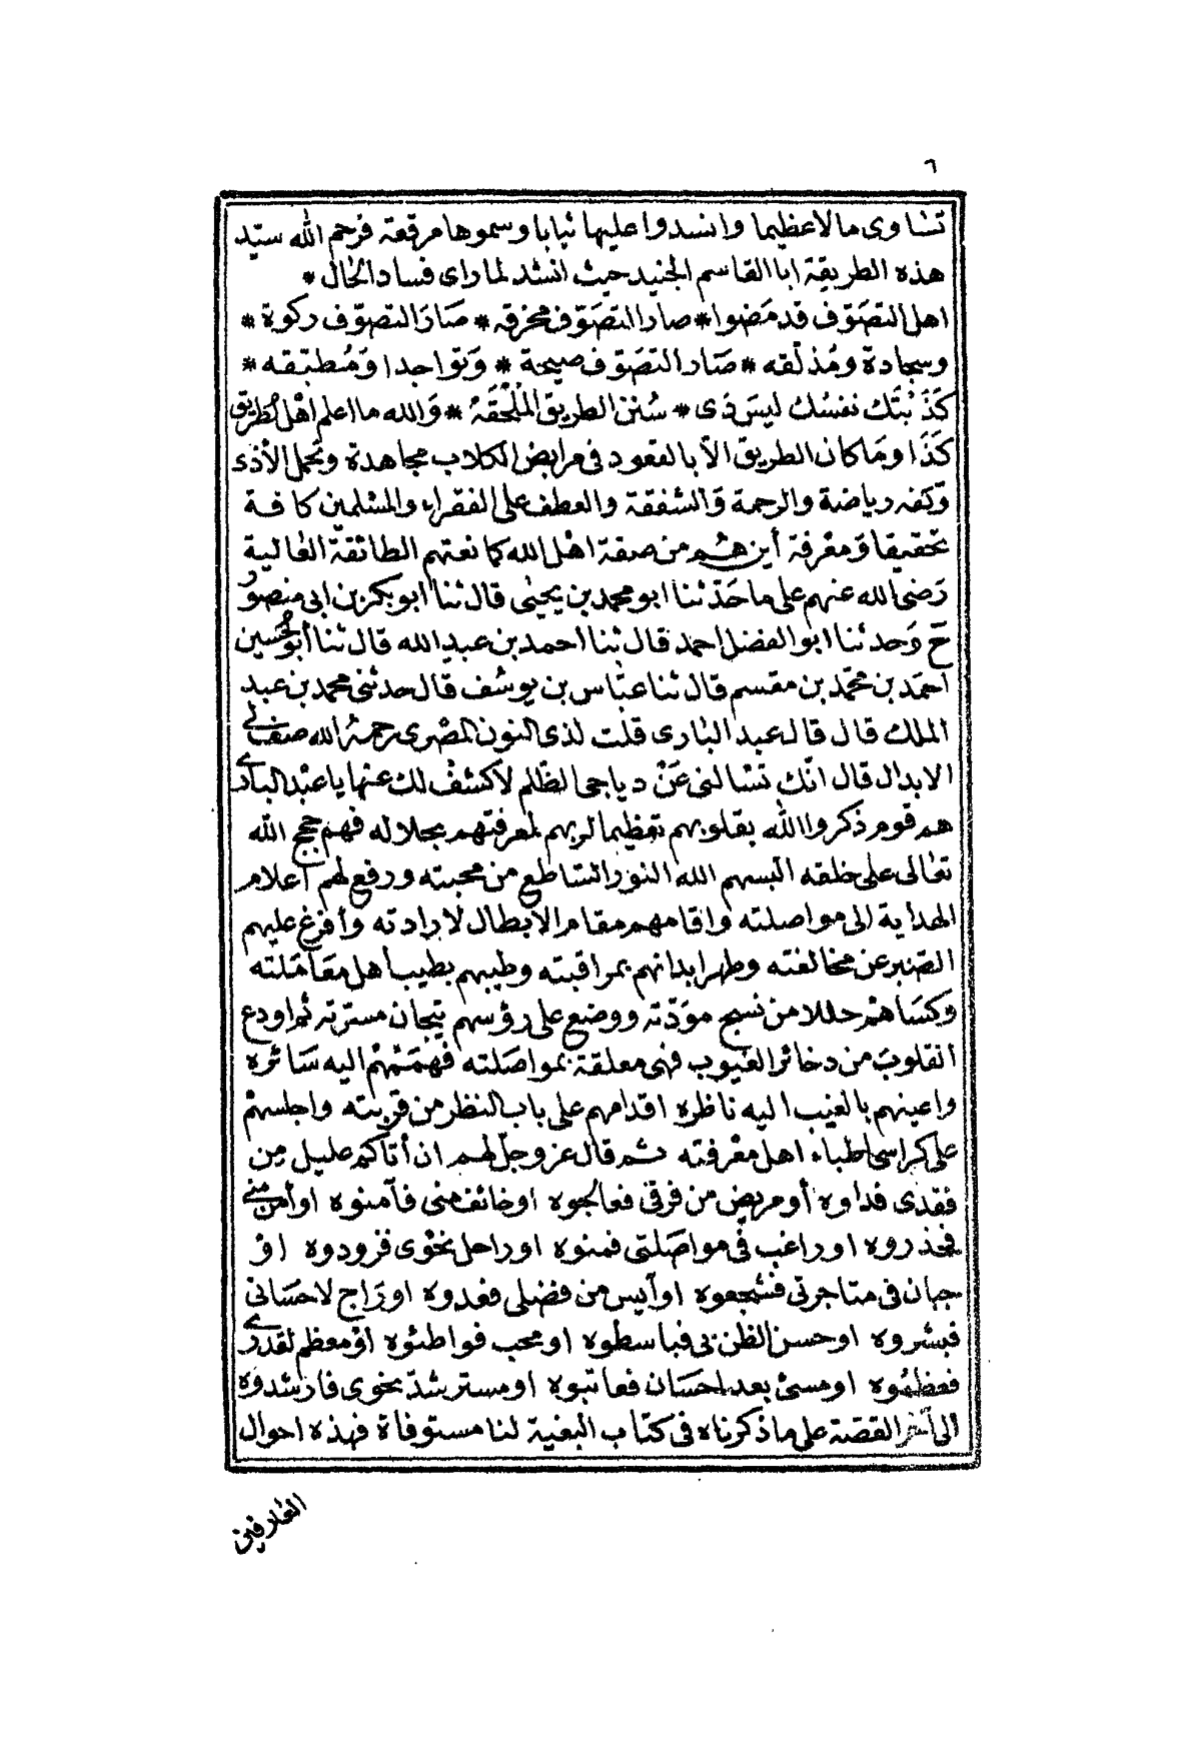 ٦
تساوى مالا عظيما وانسدوا عليها ثيابا وسموها مرقعة فرحم الله سيّد
هذه الطريقة ابا القاسم الجنيد حيث انشد لما راى فساد الحال *
اهل التصوّف قد مَضوا * صار التصَوّف مخرقه * صَارَ التصوّف ركوة *
وسجادة ومُذلقه * صَار التصَوّف صيحة * وَتواجدا وَمُطبّقه *
كَذَبتَك نفسُك ليسَ ذى * سُنن الطريق المُلْحَقَهْ * وَالله ما اعلم اهْل الطريق
كَذَا وَمَا كان الطريق الاّ بالقعود فى مرابض الكلاب مجاهدة وتحمل الأذى
وَكفه رياضة والرحمة وَالشفقة والعطف على الفقراء والمسْلمين كافة
تحقيقا وَمعْرفة أين هُم من صفة اهْل الله كما نعتهم الطائفة العٰالية
رَضى الله عنهم على ما حَدّثنا ابو محمد بن يحيٰى قال ثنا ابو بكر بن ابى منصوُر
حَ وَحدثنا ابو الفضل احمد قال ثنا احمد بن عبد الله قال ثنا أبو الحُسَين
احمَد بن محمّد بن مقسم قال ثنا عبّاس بن يوسُف قال حدثنى محمد بن عبد
الملك قال قال عبد البٰارى قلت لذى النون المصْرى رحمهُ الله صف لى
الابدال قال انّك تسْالنى عَنْ دياجى الظلم لاكشفْ لك عنها يا عبْد البارى
هم قوم ذكروا الله بقلوبهم تعظيما لربهم لمعرفتهم بجلاله فهم حجج الله
تعٰالى على خلقه البسهم الله النور السّاطع من محبته ورفع لهم أعلام
الهداية الى مواصلته واقامهم مقام الأبطال لارادته وأفرغ عليهم
الصّبر عن مخالفته وطهر ابدانهم بمراقبته وطيبهم بطيب أهل معَامَلته
وكسَاهُم حللا من نسج موَدّته ووضع على رؤسهم تيجان مسرّته ثم اودع
القلوبَ من ذخائر الغيُوب فهى معلقة بمواصَلته فهمَمُهُمْ اليه سَائره
واعينهم بالغيب اليه ناظره اقدامهم على باب النظر من قربته واجلسهمْ
على كراسى اطباء اهل معْرفته ثم قال عز وجلّ لهم ان أتاكم عليل مِن
فقدى فداوه أو مريض من فرقى فعالجوه او خائف منى فآمنوه او أمن منى
فحذروه او راغب فى مواصَلتى فمنوه او راحل نحْوى فزودوه اوْ
جبان فى متاجرتى فشجعوه او آيس من فضلى فعدوه او رَاج لاحسَانى
فبشروه او حسن الظن بى فباسطوه او محب فواطئوه اوْ معظم لقدرى
فعظموه او مسئ بعد احسَان فعاتبوه او مسترشد نحوى فارْشدوه
الى آخر القصّة على ما ذكرناه فى كتاب البغية لنا مستوفاة فهذه احوال
العٰارفين